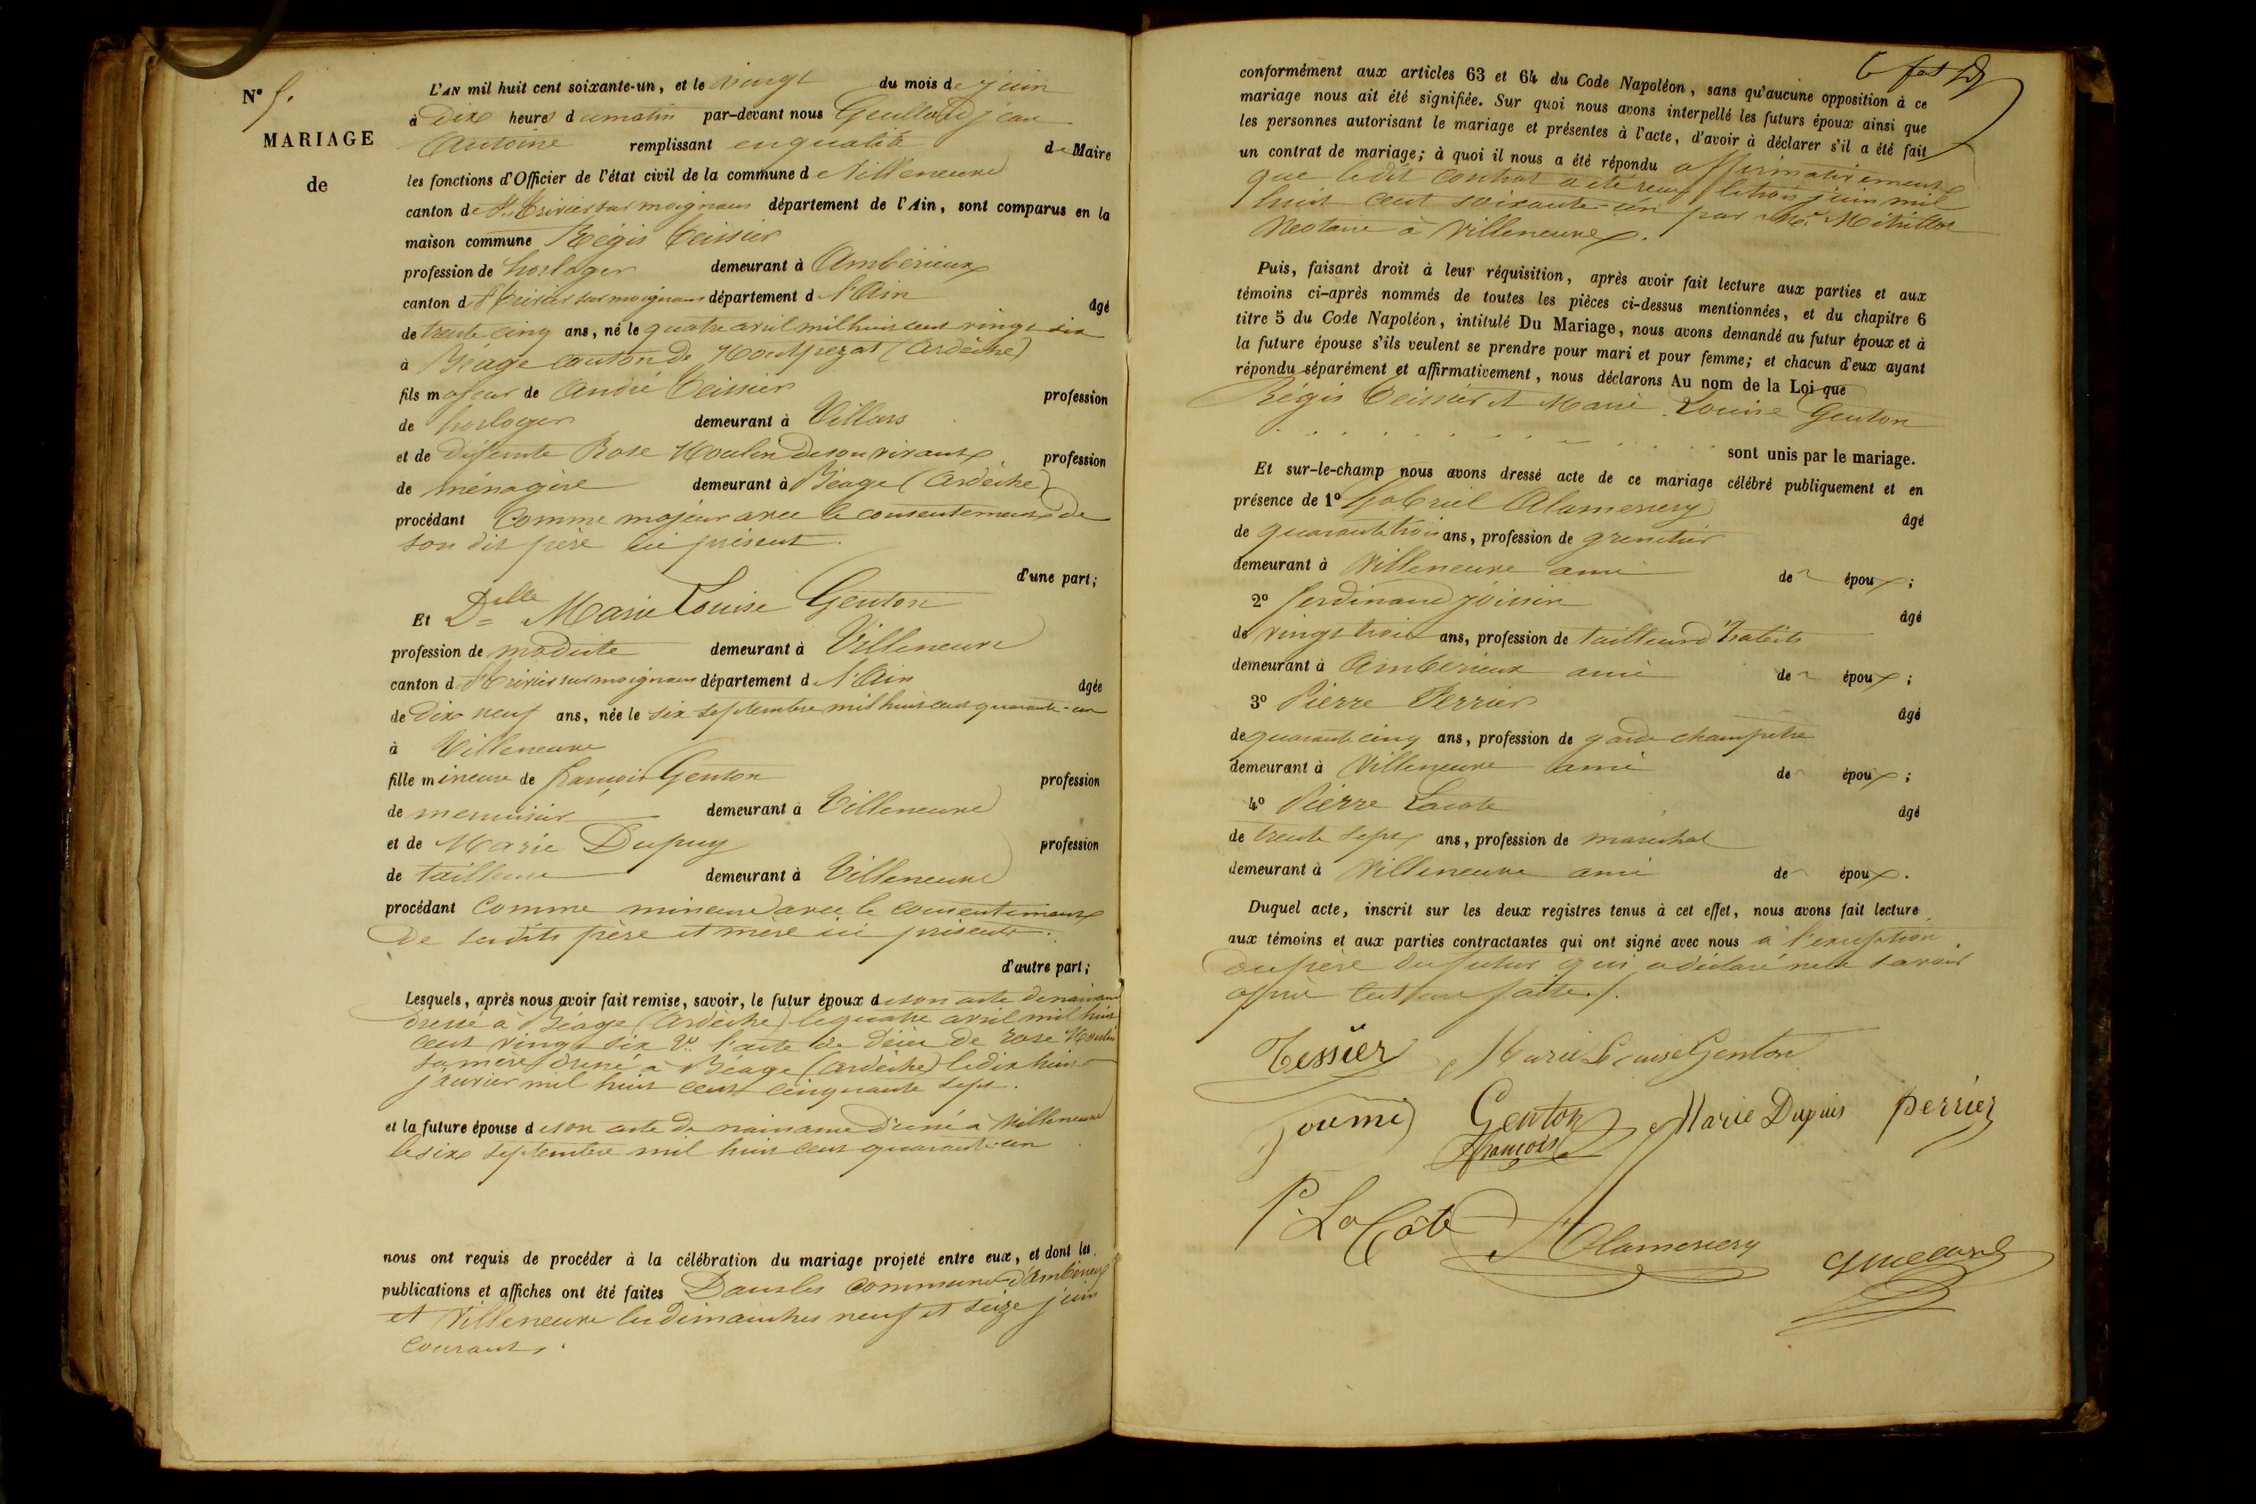 N° 5.
MARIAGE
de
L'AN mil huit cent soixante-un, et le vingt du mois de juin
à Dix heures du matin par-devant nous jean
Antoine remplissant en qualité de Maire
les fonctions d'Officier de l'état civil de la commune de Villeneuve
canton de St Trivier sur moignans département de l'Ain, sont comparus en la
maison commune Régis Teissier
profession de horloger demeurant à Ambérieux
canton de St Trivier sur moignans département de l'Ain âgé
de trente cinq ans, né le quatre avril mil huit cent vingt six
à Béage canton de Montpezat (Ardèche)
fils majeur de André Teissier profession
de horloger demeurant à Villars
et de défunte Rose Moulin de son vivant profession
de ménagère demeurant à Béage (Ardèche)
procédant Comme majeur avec le consentement de
son dit père ici présent.
d'une part;
Et Delle Marie Louise Genton
profession de modiste demeurant à Villeneuve
canton de St Trivier sur moignans département de l'Ain âgée
de Dix neuf ans, née le six septembre mil huit cent quarante-un
à Villeneuve
fille mineure de françois Genton profession
de menuisier demeurant à Villeneuve
et de Marie Dupuy profession
de tailleuse demeurant à Villeneuve
procédant Comme mineure avec le consentement
de sesdits père et mère ici présents.
d'autre part;
Lesquels, après nous avoir fait remise, savoir, le futur époux de son acte de naissance
dressé à Béage (Ardèche) le quatre avril mil huit
cent vingt six 2° l'acte de décès de rose Moulin
sa mère dressé à Béage (Ardèche) le dix huit
janvier mil huit cent cinquante sept.
et la future épouse de son acte de naissance dressé à Villeneuve
le six septembre mil huit cent quarante-un
nous ont requis de procéder à la célébration du mariage projeté entre eux, et dont les
publications et affiches ont été faites Dans les communes d'Ambérieux
et Villeneuve les dimanches neuf et seize juin
courant.
conformément aux articles 63 et 64 du Code Napoléon, sans qu'aucune opposition à ce
mariage nous ait été signifiée. Sur quoi nous avons interpellé les futurs époux ainsi que
les personnes autorisant le mariage et présentes à l'acte, d'avoir à déclarer s'il a été fait
un contrat de mariage; à quoi il nous a été répondu affirmativement
que ledit contrat a été reçu le trois juin mil
huit cent soixante-un par Me
Notaire à Villeneuve.
Puis, faisant droit à leur réquisition, après avoir fait lecture aux parties et aux
témoins ci-après nommés de toutes les pièces ci-dessus mentionnées, et du chapitre 6
titre 5 du Code Napoléon, intitulé Du Mariage, nous avons demandé au futur époux et à
la future épouse s'ils veulent se prendre pour mari et pour femme; et chacun d'eux ayant
répondu séparément et affirmativement, nous déclarons Au nom de la Loi que
Régis Teissier et Marie Louise Genton
sont unis par le mariage.
Et sur-le-champ nous avons dressé acte de ce mariage célébré publiquement et en
présence de 1° Gabriel Alamercery âgé
de quarante trois ans, profession de grenetier
demeurant à Villeneuve ami de époux;
2° ferdinand âgé
de vingt trois ans, profession de tailleur d'habits
demeurant à Ambérieux ami de époux;
3° Pierre Perrier âgé
de quarante cinq ans, profession de garde champêtre
demeurant à Villeneuve ami de époux;
4° Pierre Lacote âgé
de trente sept ans, profession de maréchal
demeurant à Villeneuve ami de époux.
Duquel acte, inscrit sur les deux registres tenus à cet effet, nous avons fait lecture
aux témoins et aux parties contractantes qui ont signé avec nous à l'exception
du père du futur qui a déclaré ne le savoir
après lecture faite.
Tessier Marie Louise Genton
Genton Marie Dupuis perrier
françois
P. La Côte Alamercery